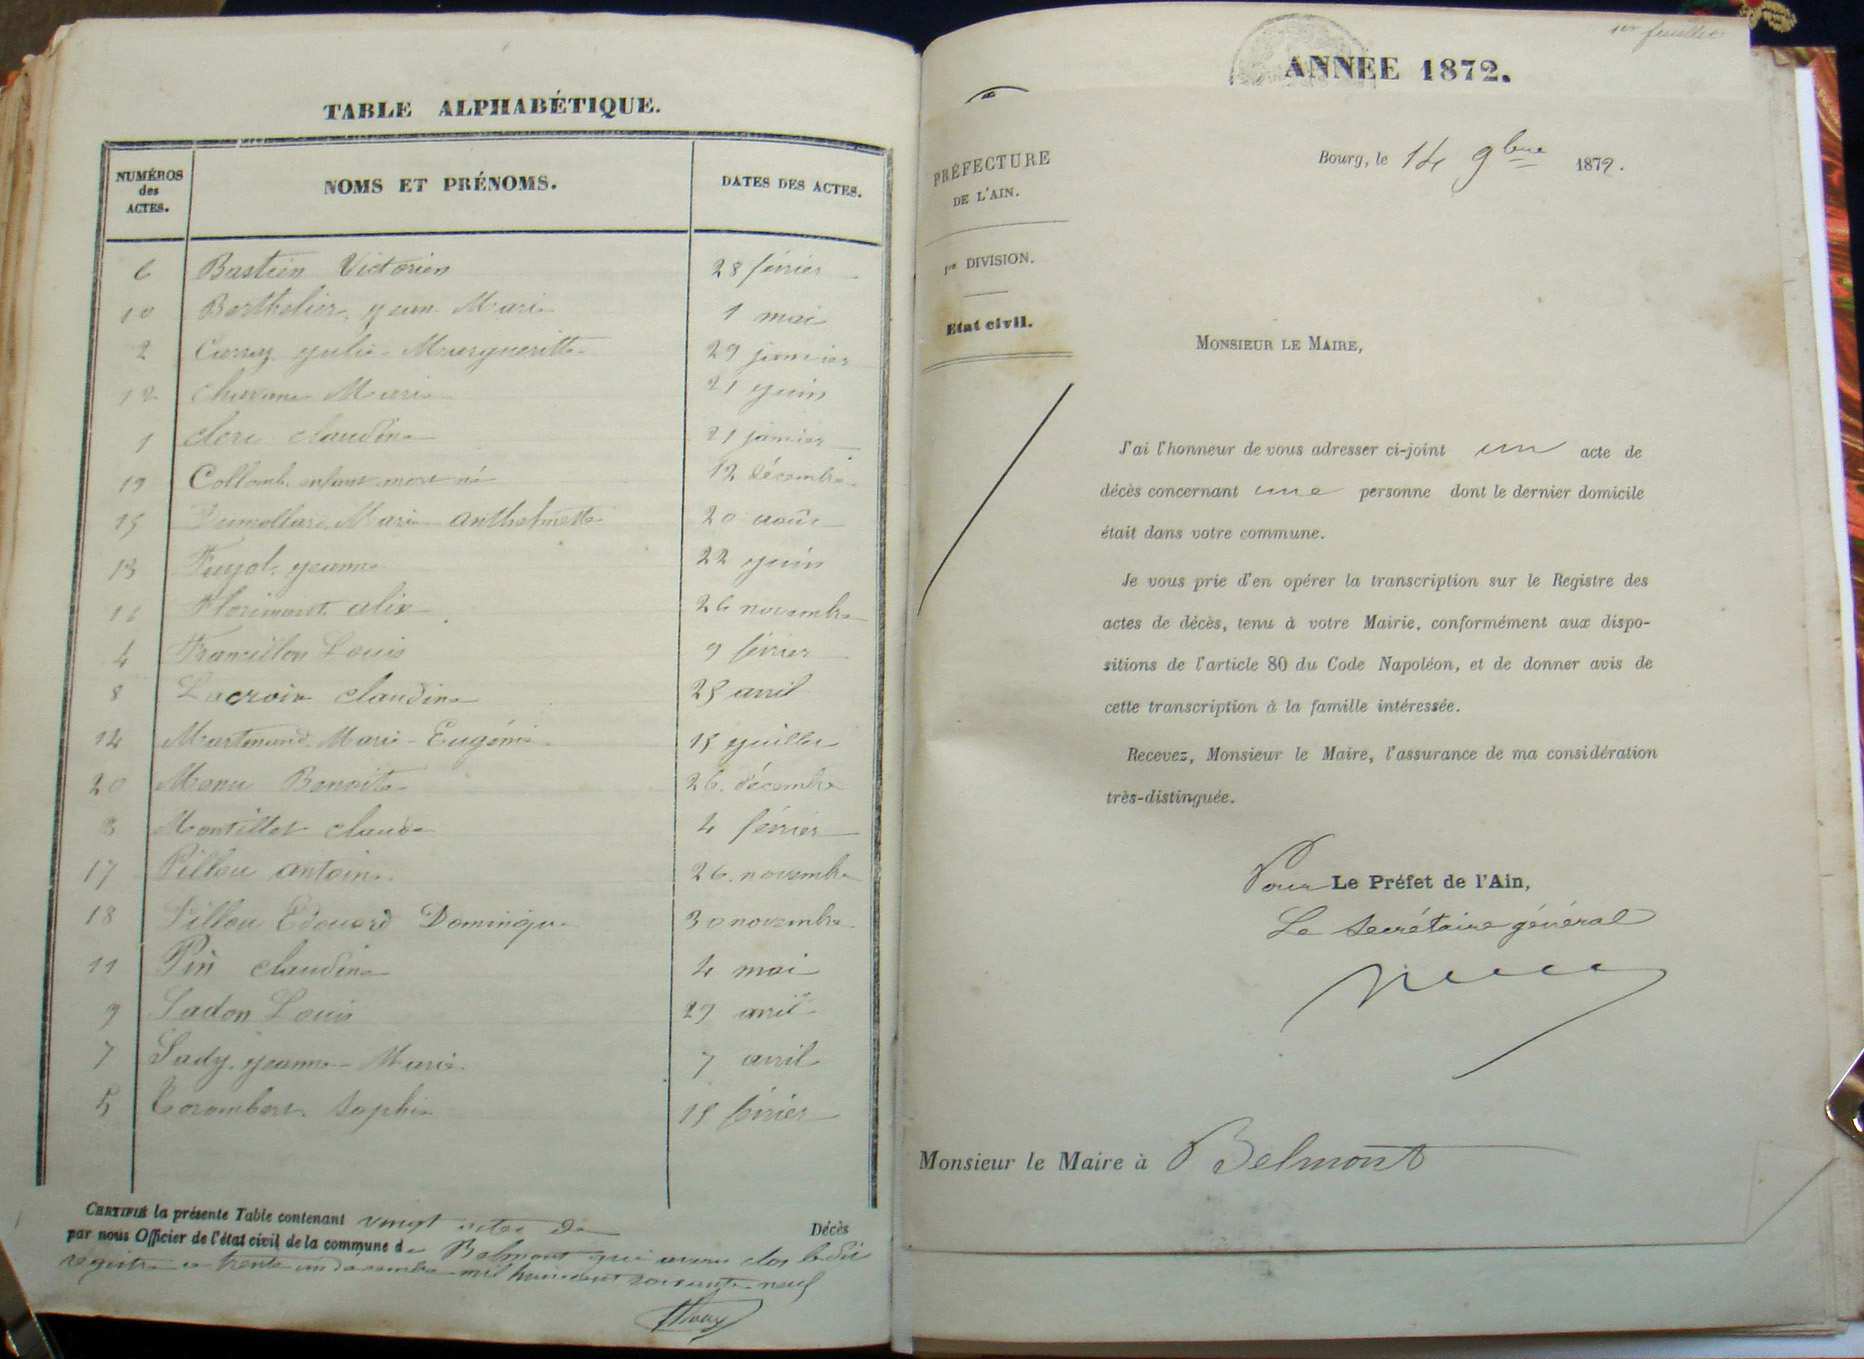 TABLE ALPHABÉTIQUE.
NUMÉROS des ACTES. NOMS ET PRÉNOMS. DATES DES ACTES.
6 Bastein Victorien 28 février
10 Berthelier jean Marie 1 mai
2 Curray julie Margueritte 29 janvier
12 Marie 21 juin
1 clerc claudine 21 janvier
19 Collomb enfant mort né 12 décembre
15 Dumollard Marie anthelmette 20 août
13 jeanne 22 juin
16 Florimont alix 26 novembre
4 Francillon Louis 9 février
8 Lacroix claudine 25 avril
14 Martinand Marie-Eugénie 15 juillet
20 Menu Benoite 26 décembre
3 Montillet claude 4 février
17 Pillou antoine 26 novembre
18 Pillou Edouard Dominique 30 novembre
11 Pin claudine 4 mai
9 Sadon Louis 27 avril
7 Sady jeanne-Marie 7 avril
5 Torombert Sophie 15 février
CERTIFIÉ la présente Table contenant vingt actes de Décès
par nous Officier de l'état civil de la commune de Belmont qui avons clos ledit
registre le trente un décembre mil huit cent soixante neuf
1er feuillet
ANNÉE 1872.
PRÉFECTURE
DE L'AIN.
1re DIVISION.
Etat civil.
Bourg, le 14 9bre 1872.
MONSIEUR LE MAIRE,
J'ai l'honneur de vous adresser ci-joint un acte de
décès concernant une personne dont le dernier domicile
était dans votre commune.
Je vous prie d'en opérer la transcription sur le Registre des
actes de décès, tenu à votre Mairie, conformément aux dispo-
sitions de l'article 80 du Code Napoléon, et de donner avis de
cette transcription à la famille intéressée.
Recevez, Monsieur le Maire, l'assurance de ma considération
très-distinguée.
Pour Le Préfet de l'Ain,
Le secrétaire général
Monsieur le Maire à Belmont